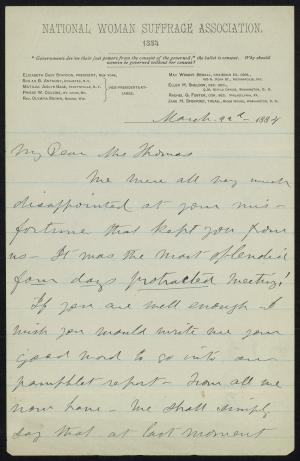 NATIONAL WOMAN SUFFRAGE ASSOCIATION.
1884
"Governments derive their just powers from the consent of the governed;" the ballot is consent. Why should
women be governed without their consent?
ELIZABETH CADY STANTON, PRESIDENT, NEW YORK.
SUSAN B. ANTHONY, ROCHESTER, N.Y.
MATILDA JOSLYN GAGE, FAYETTEVILLE, N.Y.
PHEBE W. COUZINS, ST. LOUIS, MO.
REV. OLYMPIA BROWN, RACINE, WIS.
VICE-PRESIDENTS-AT-LARGE.
MAY WRIGHT SEWALL, CHAIRMAN EX. COM.,
INDIANAPOLIS, IND.
ELLEN H. SHELDON, REC. SEC.,
WASHINGTON, D.C.
RACHEL G. FOSTER, COR. SEC., PHILADELPHIA, PA.
JANE H. SPOFFORD, TREAS., RIGGS HOUSE, WASHINGTON, D.C.
March 1884
My Dear Mrs Thomas
We were all very much
disappointed at your mis-
fortune that kept you from
us - It was the most splendid
four days protracted meeting!
If you are well enough - I
wish you would write me your
good word to go into our
pamphlet report - From all we
now have - We shall simply
say that at last moment